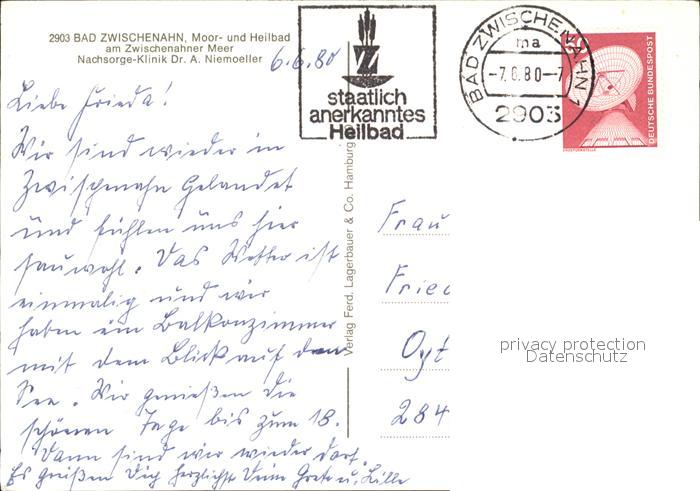 2903 BAD ZWISCHENAHN, Moor- und Heilbad
am Zwischenahner Meer
Nachsorge-Klinik Dr. A. Niemoeller
6.6.80
staatlich
anerkanntes
Heilbad
BAD ZWISCHENAHN 1
ma
-7.6.80-7
2903
DEUTSCHE BUNDESPOST
Liebe Frieda!
Wir sind wieder in
Zwischenahn Gelandet
und fühlen uns hier
sauwohl. Das Wetter ist
einmalig und wir
haben ein Balkonzimmer
mit dem Blick auf den
See. Wir genießen die
schönen Tage bis zum 18.
Dann sind wir wieder dort.
Es grüßen Dich herzlichst Deine Grete u. Lille
Verlag Ferd. Lagerbauer & Co. Hamburg
Frau
Fried
Oyt
284
privacy protection
Datenschutz